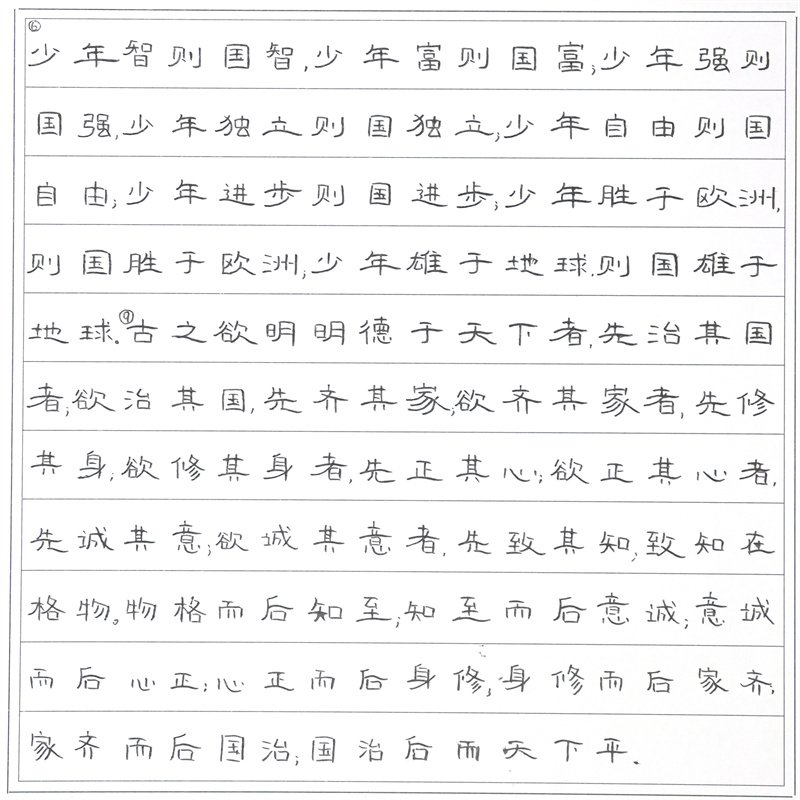 ⑥少年智则国智,少年富则国富;少年强则
国强,少年独立则国独立;少年自由则国
自由;少年进步则国进步;少年胜于欧洲,
则国胜于欧洲;少年雄于地球.则国雄于
地球.⑨古之欲明明德于天下者,先治其国
者;欲治其国,先齐其家;欲齐其家者,先修
其身;欲修其身者,先正其心;欲正其心者,
先诚其意;欲诚其意者,先致其知;致知在
格物。物格而后知至;知至而后意诚;意诚
而后心正;心正而后身修;身修而后家齐;
家齐而后国治;国治后而天下平.